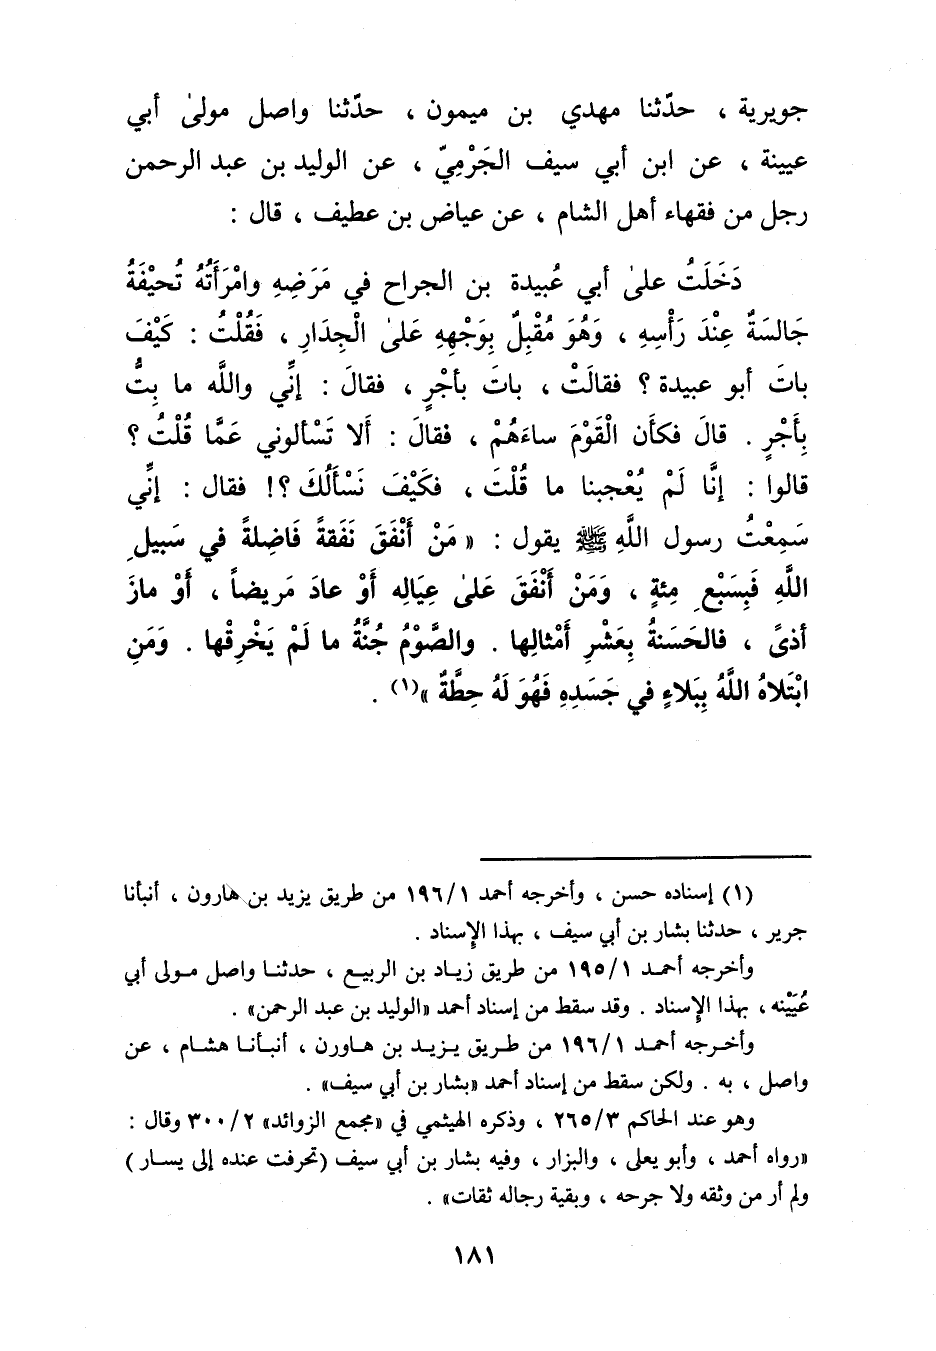 جويرية ، حدّثنا مهدي بن ميمون ، حدّثنا واصل مولىٰ أبي
عيينة ، عن ابن أبي سيف الجَرْمِيّ ، عن الوليد بن عبد الرحمن
رجل من فقهاء أهل الشام ، عن عياض بن عطيف ، قال :
دَخَلَتُ علىٰ أبي عُبيدة بن الجراح في مَرَضِهِ وامْرَأَتُهُ تُحيْفَةُ
جَالسَةٌ عِنْدَ رَأْسِهِ ، وَهُوَ مُقْبِلٌ بِوَجْهِهِ عَلىٰ الْجِدَارِ ، فَقُلْتُ : كَيْفَ
باتَ أبو عبيدة ؟ فقالَتْ ، باتَ بأجْرٍ ، فقالَ : إنِّي واللَّه ما بِتُّ
بِأَجْرٍ . قالَ فكأَن الْقَوْمَ ساءَهُمْ ، فقالَ : أَلا تَسْألوني عَمَّا قُلْتُ ؟
قالوا : إنَّا لَمْ يُعْجبنا ما قُلْتَ ، فكَيْفَ نَسْأَلُكَ ؟! فقال : إنِّي
سَمِعْتُ رسول اللَّهِ ﷺ يقول : « مَنْ أَنْفَقَ نَفَقةً فَاضِلةً في سَبيلِ
اللَّهِ فَبِسَبْعِ مِئةٍ ، وَمَنْ أَنْفَقَ عَلىٰ عِيَالِه أَوْ عادَ مَريضاً ، أَوْ مازَ
أذىً ، فالحَسَنةُ بِعَشْرِ أَمْثالِها . والصَّوْمُ جُنَّةُ ما لَمْ يَخْرِقْها . وَمَنِ
ابْتَلاهُ اللَّهُ بِبَلاءٍ في جَسَدِهِ فَهُوَ لَهُ حِطَّةٌ »(١) .
(١) إسناده حسن ، وأخرجه أحمد ١٩٦/١ من طريق يزيد بن هارون ، أنبأنا
جرير ، حدثنا بشار بن أبي سيف ، بهذا الإسناد .
وأخرجه أحمد ١٩٥/١ من طريق زياد بن الربيع ، حدثنا واصل مولى أبي
عُيَيْنه ، بهذا الإسناد . وقد سقط من إسناد أحمد «الوليد بن عبد الرحمن» .
وأخرجه أحمد ١٩٦/١ من طريق يزيد بن هاورن ، أنبأنا هشام ، عن
واصل ، به . ولكن سقط من إسناد أحمد «بشار بن أبي سيف» .
وهو عند الحاكم ٢٦٥/٣ ، وذكره الهيثمي في «مجمع الزوائد» ٣٠٠/٢ وقال :
«رواه أحمد ، وأبو يعلى ، والبزار ، وفيه بشار بن أبي سيف (تحرفت عنده إلى يسار)
ولم أر من وثقه ولا جرحه ، وبقية رجاله ثقات» .
١٨١